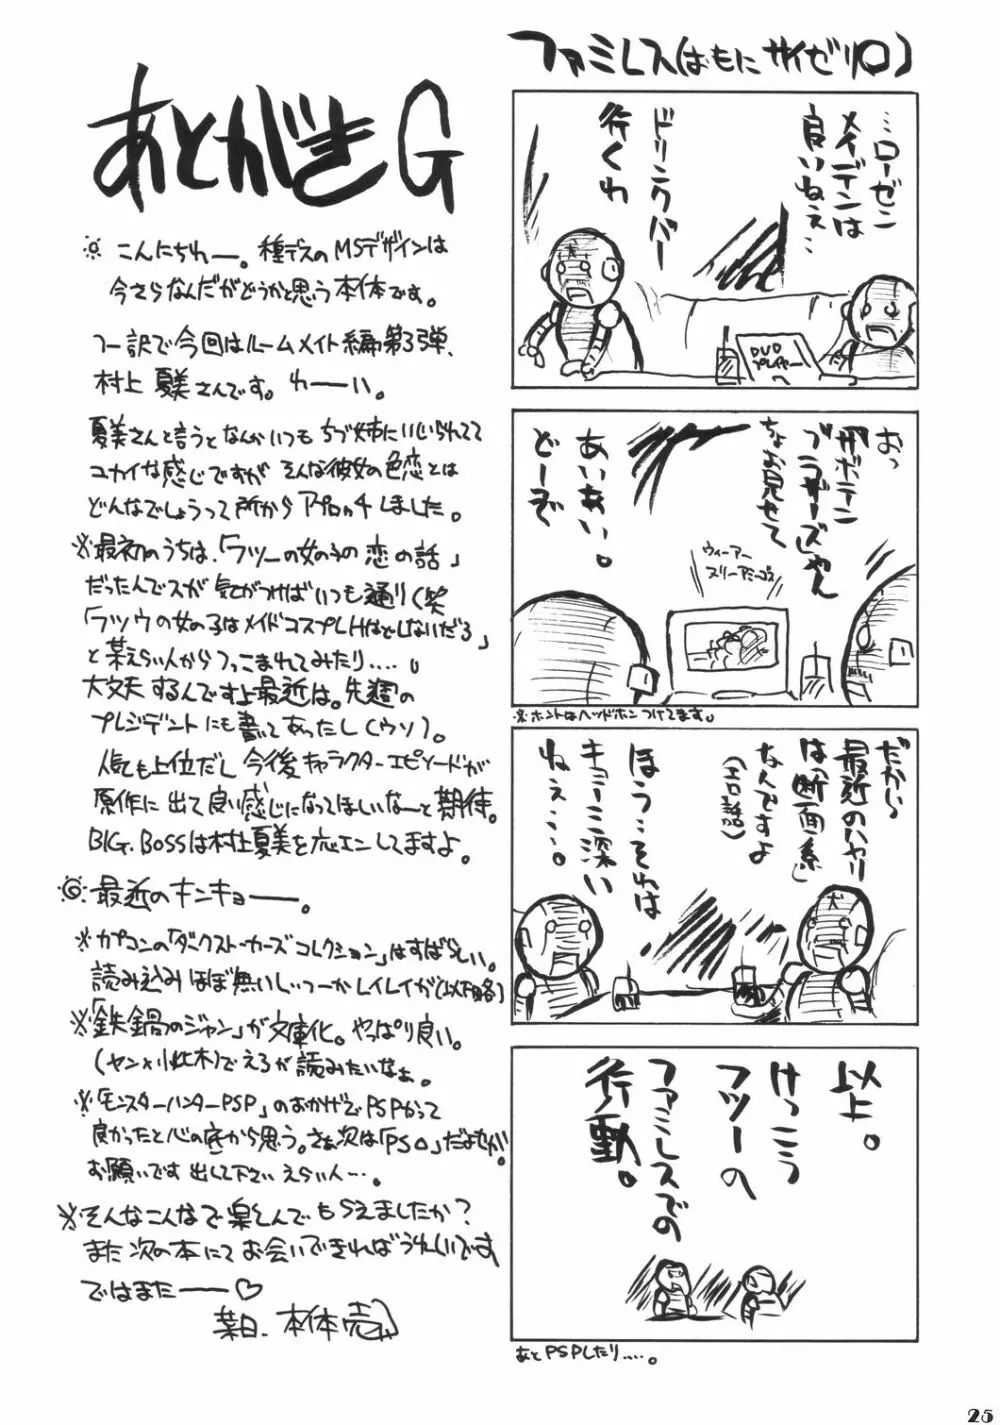 あとがきG
こんにちわー。種デスのMSデザインは
今さらなんだがどうかと思う本体です。
つー訳で今回はルームメイト編第3弾、
村上夏美さんです。わーい。
夏美さんと言うとなんかいつもちづ姉にいじられてて
ユカイな感じですがそんな彼女の色恋とは
どんなでしょうって所からアプロッチしました。
※最初のうちは、「フツーの女の子の恋の話」
だったんでスが気がつけばいつも通り(笑
「フツウの女の子はメイドコスプレHはしないだろ」
と某えらい人からつっこまれてみたり.....。
大丈夫するんですよ最近は。先週の
プレジデントにも書いてあったし(ウソ)。
人気も上位だし今後キャラクターエピソードが
原作に出て良い感じになってほしいなーと期待。
BIG.BOSSは村上夏美を応エンしてますよ。
最近のキンキョー。
※カプコンの「ダークストーカーズコレクション」はすばらしい。
読み込みほぼ無いしつーかレイレイが(以下略)
※「鉄鍋のジャン」が文庫化。やっぱり良い。
(ヤン×小此木)でえろが読みたいなぁ。
※「モンスターハンターPSP」のおかげでPSPかって
良かったと心の底から思う。さぁ次は「PS○」だよせが
お願いです出して下さいえらい人…。
※そんなこんなで楽しんでもらえましたか?
また次の本にてお会いできればうれしいです
ではまたー♡
某日.本体売
ファミレス(はもにサイゼリ○)
…ローゼン
メイデンは
良いねぇ…
ドリンクバー
行くわ
DVD
プレイヤー
へ
おっ
『サボテン
ブラザーズ』じゃん
ちょお見せて
あいあい。
どーぞ
ウィーアー
スリーアミーゴス
※ホントはヘッドホンつけてます。
だから
最近のハヤリ
は「断面系」
なんですよ
(エロ話)
ほう…それは
キョーミ深い
ねぇ…。
以上。
けっこう
フツーの
ファミレスでの
行動。
あとPSPしたり…。
25